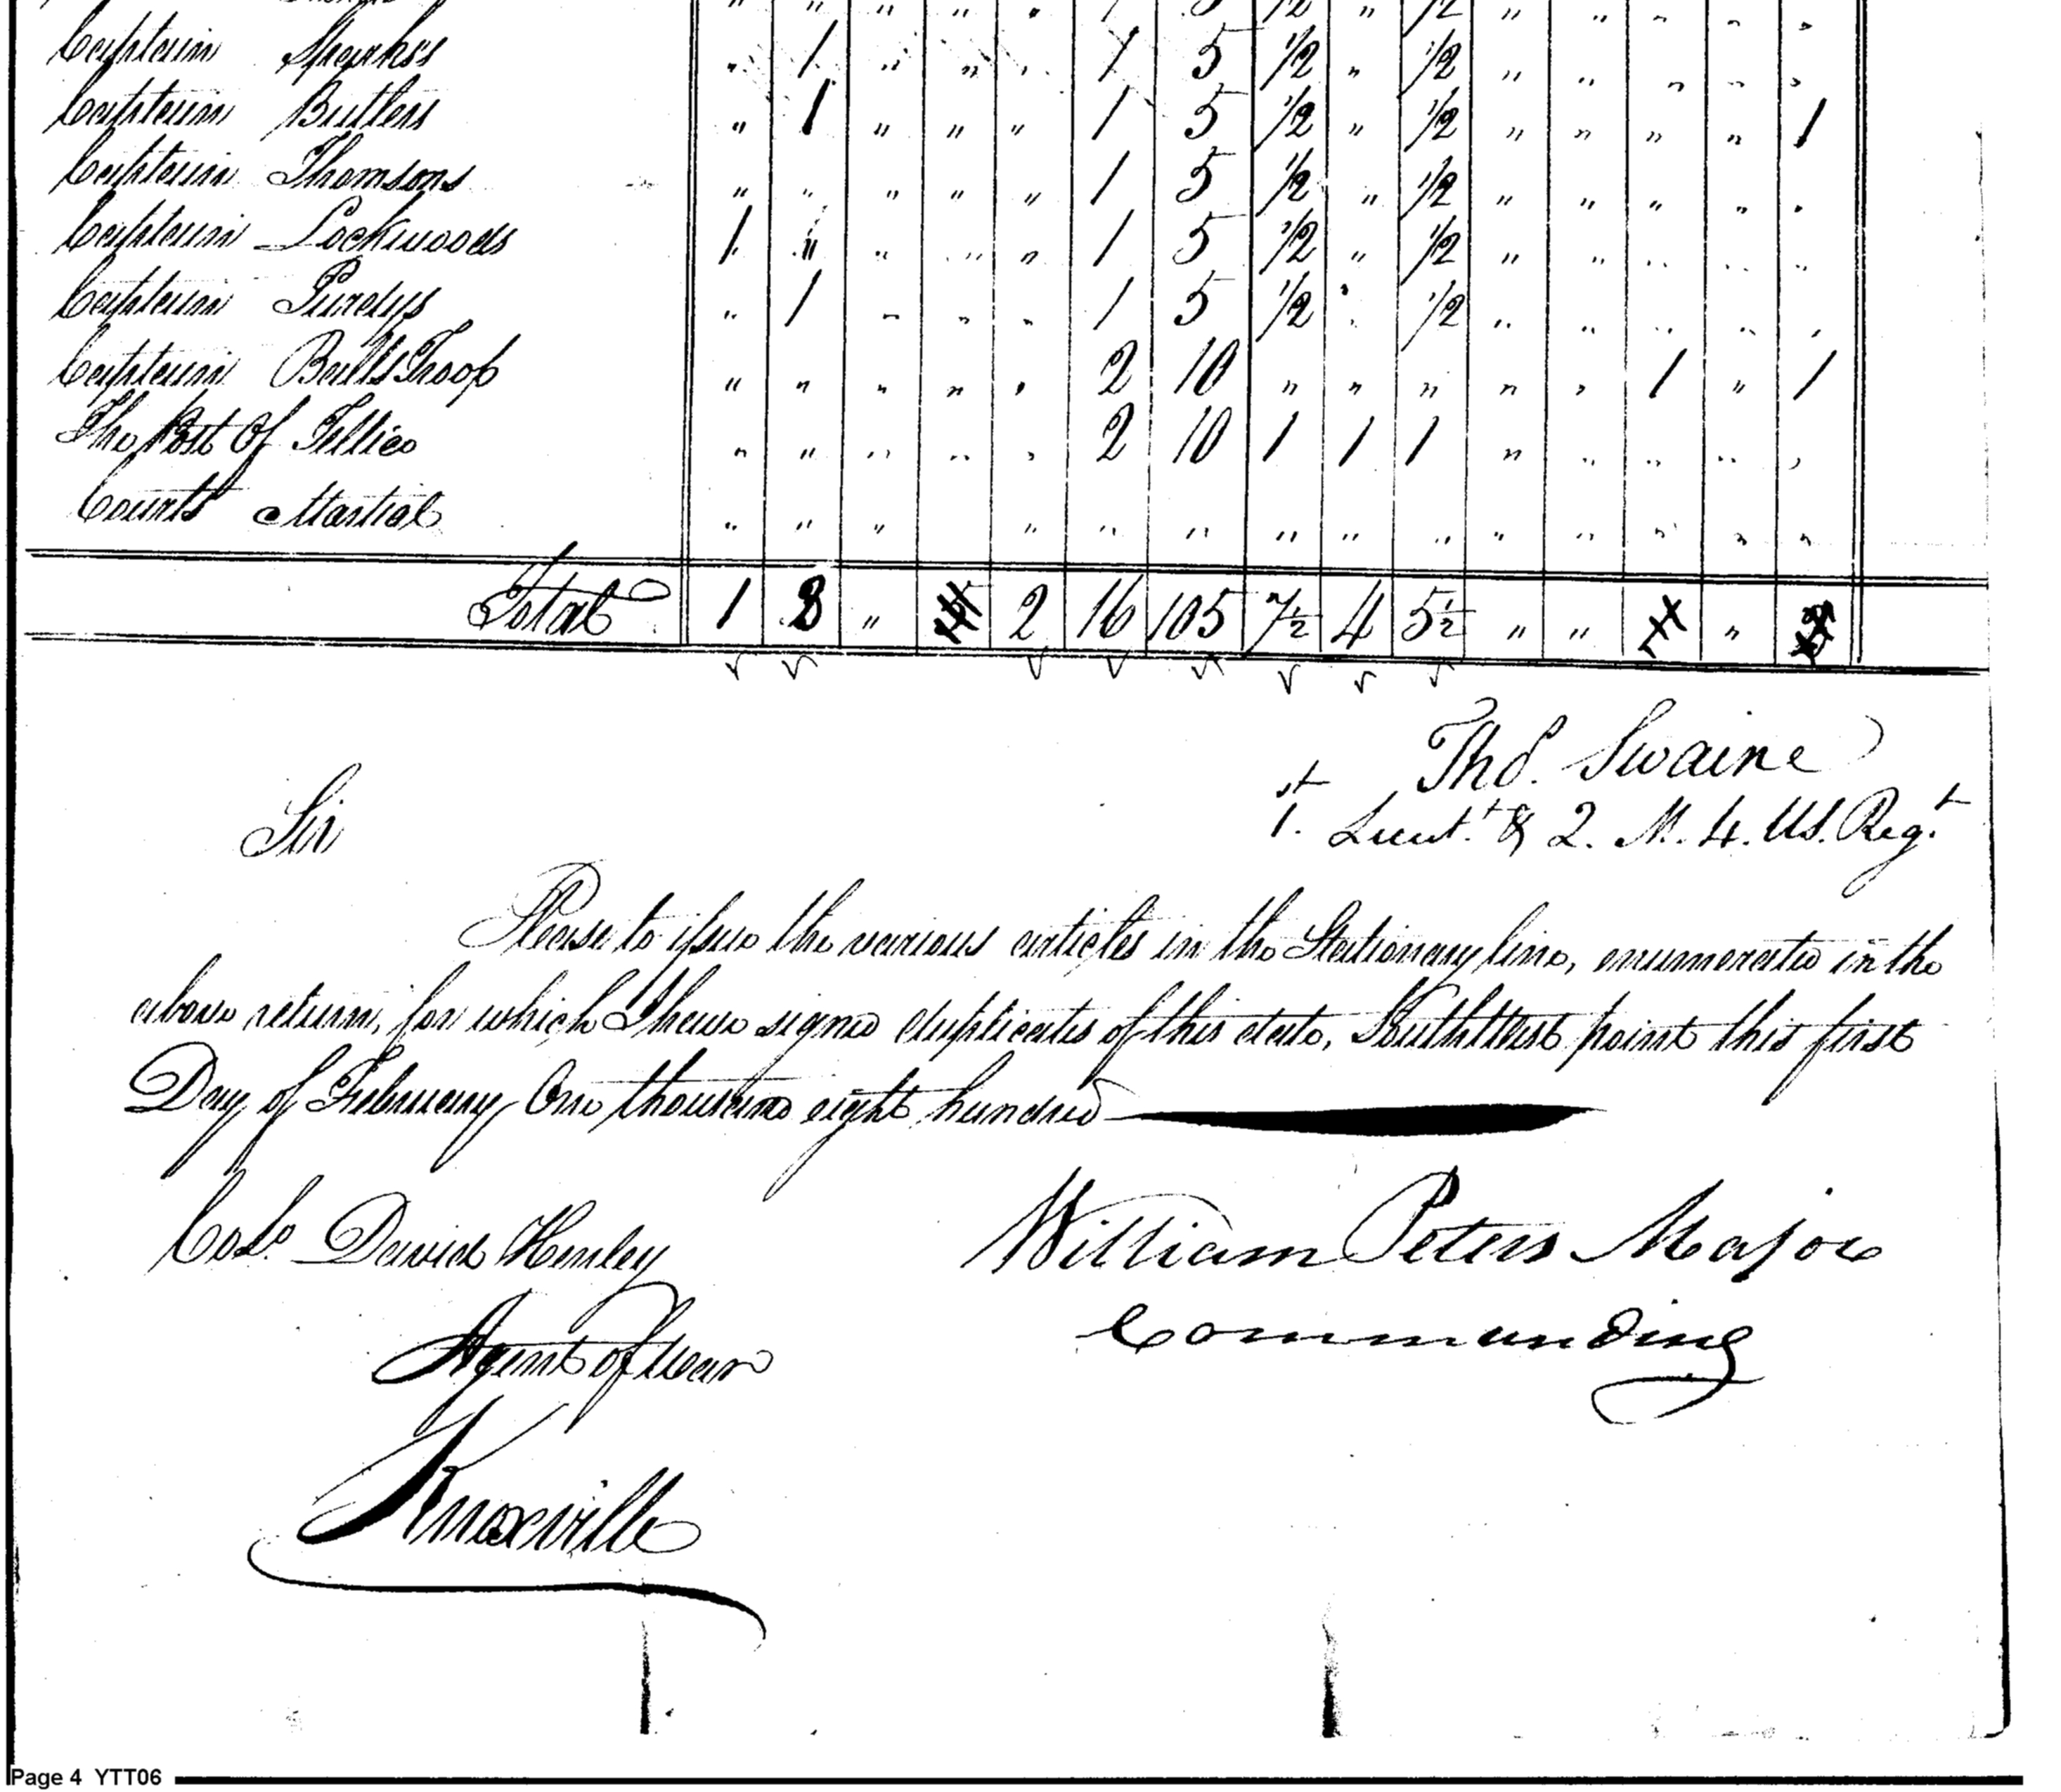 " " " " " 1 5 1/2 " 1/2 " " " " "
Captain Sparkes " 1 " " " 1 5 1/2 " 1/2 " " " " "
Captain Butlers " 1 " " " 1 5 1/2 " 1/2 " " " " 1
Captain Thomsons " " " " " 1 5 1/2 " 1/2 " " " " "
Captain Lockwoods 1 " " " " 1 5 1/2 " 1/2 " " " " "
Captain Purdys " 1 " " " 1 5 1/2 " 1/2 " " " " "
Captain Balls Troop " " " " " 2 10 " " " " " 1 " 1
The Post Of Tellico " " " " " 2 10 1 1 1 " " " " "
Courts Martial " " " " " " " " " " " " " " "
Total 1 8 " 2 16 105 7 1/2 4 5 1/2 " " "
Thos. Swaine
1st. Lieut. & 2. M. 4. US. Regt.
Sir
Please to issue the various articles in the Stationary line, enumerated in the
above return, for which I have signed duplicates of this date, South West point this first
Day of February One thousand eight hundred
Colo. David Henley
William Peters Major
Commanding
Agent of War
Knoxville
Page 4 YTT06